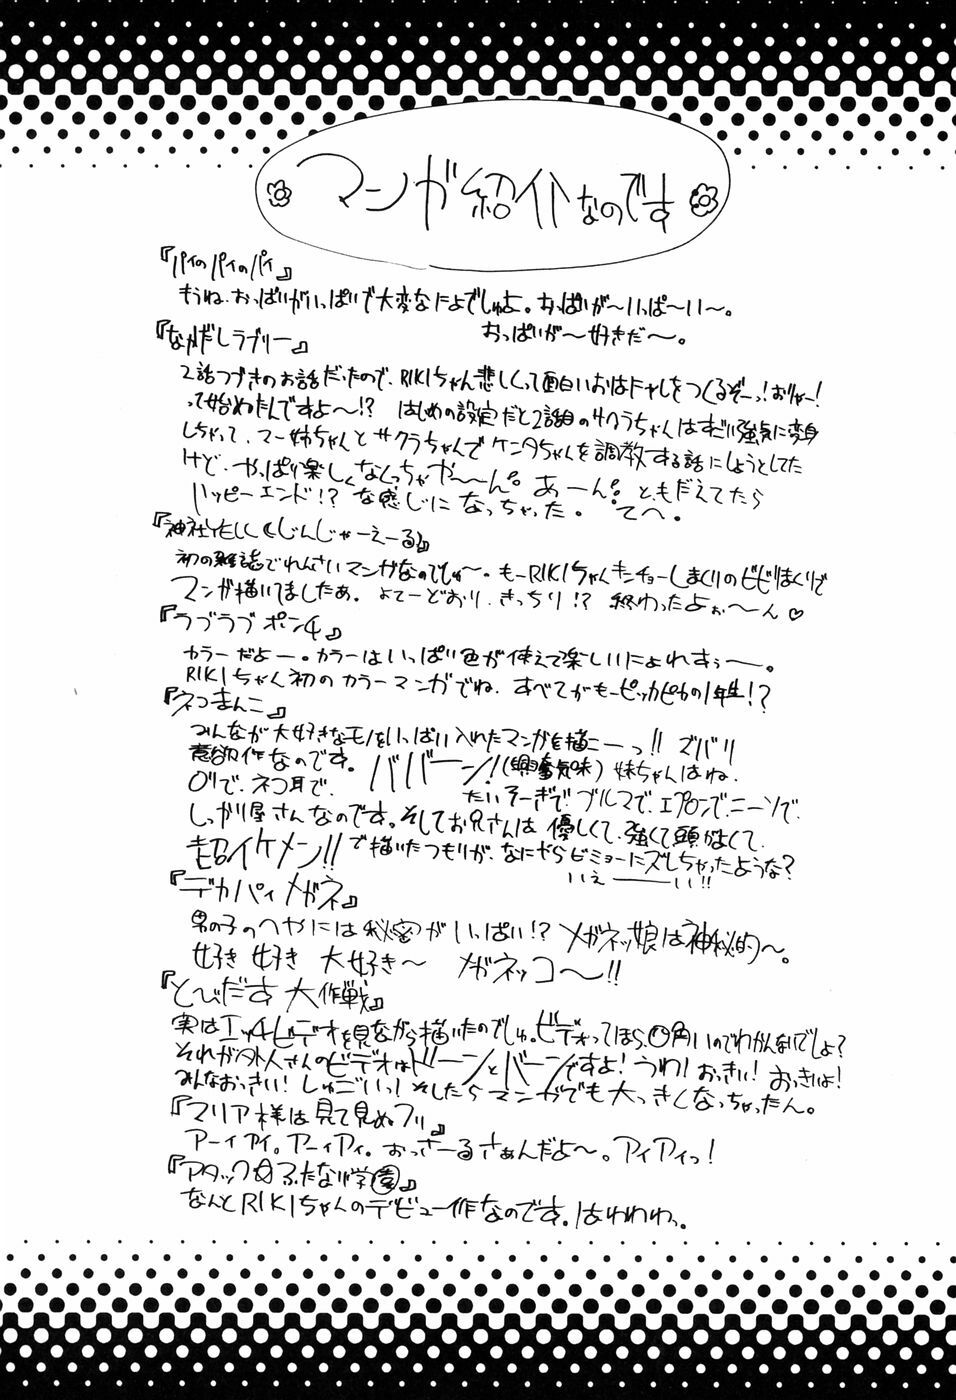 マンガ紹介なのです
『パイのパイのパイ』
もうね、おっぱいがいっぱいで大変なにょでしゅよ。おっぱいが～いっぱ～い～。
おっぱいが～好きだ～。
『なかだしラブリー』
2話つづきのお話だったので、RIKIちゃん悲しくって面白いおはなしをつくるぞーっ!おりゃー!
って始めたんですよ～!? はじめの設定だと2話目のサクラちゃんはすごい強気に変身
しちゃって、マー姉ちゃんとサクラちゃんでケンタちゃんを調教する話にしようとしてた
けど、やっぱり楽しくなくっちゃや～～ん。あーん。ともだえてたら
ハッピーエンド!?な感じになっちゃった。てへ。
『神社YELL(じんじゃーえーる)』
初の雑誌でれんさいマンガなのでしゅ～。もーRIKIちゃんキンチョーしまくりのビビりまくりで
マンガ描いてましたぁ。よてーどおり、きっちり!? 終わったよぉ～ん♡
『ラブラブポンチ』
カラーだよー。カラーはいっぱい色が使えて楽しいにょれすぅー。
RIKIちゃん初のカラーマンガでね、すべてがもーピッカピカの1年生!?
『ネコまんこ』
みんなが大好きなモノをいっぱい入れたマンガを描こーっ!!ズバリ
意欲作なのです。ババーン!(興奮気味)妹ちゃんはね、
ロリで、ネコ耳で、たいそーぎで、ブルマで、エプロンで、ニーソで、
しっかり屋さんなのです。そしてお兄さんは優しくて、強くて頭がよくて、
超イケメン!!で描いたつもりが、なにやらビミョーにズレちゃったような?
いぇーーい!!
『デカパイメガネ』
男の子のへやには秘密がいっぱい!?メガネッ娘は神秘的～。
好き 好き 大好き～ メガネッコ～!!
『とびだす大作戦』
実はエッチビデオを見ながら描いたのでしゅ。ビデオってほら、〇角いのでわかんないでしょ?
それが外人さんのビデオはドーンとバーンですよ!うわ!おっきい!おっきぃよ!
みんなおっきい!しゅごいっ!そしたらマンガでも大っきくなっちゃったん。
『マリア様は見て見ぬフリ』
アーイアイ。アーイアイ。おっさーるさぁんだよ～。アイアイっ!
『アタック☆ふたなり学園』
なんとRIKIちゃんのデビュー作なのです。はわわわっ。